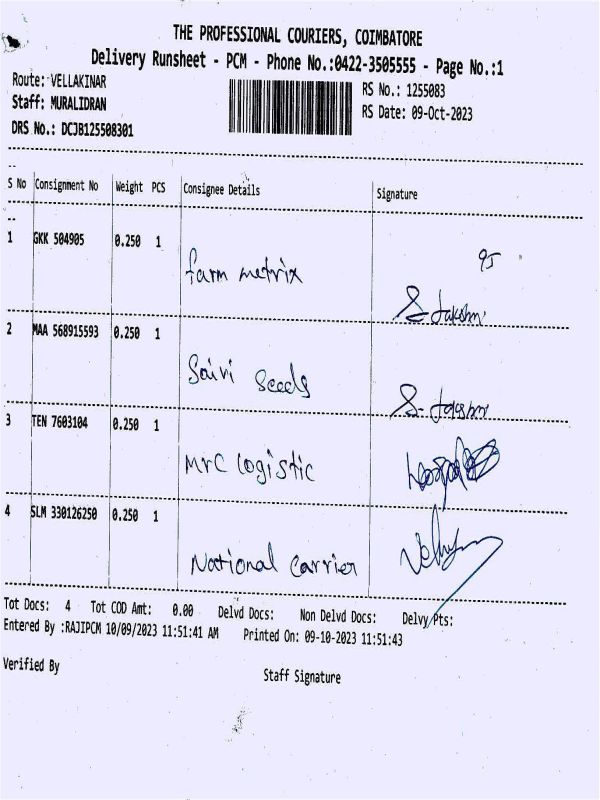 THE PROFESSIONAL COURIERS, COIMBATORE
Delivery Runsheet - PCM - Phone No.:0422-3505555 - Page No.:1
Route: VELLAKINAR
RS No.: 1255083
Staff: MURALIDRAN
RS Date: 09-Oct-2023
DRS No.: DCJB125508301
S No Consignment No Weight PCS Consignee Details Signature
1 GKK 504905 0.250 1
farm metrix
95
S- Jakshmi
2 MAA 568915593 0.250 1
Saivi Seeds
3 TEN 7603104 0.250 1
MrC logistic
4 SLM 330126250 0.250 1
National Carrier
Tot Docs: 4 Tot COD Amt: 0.00 Delvd Docs: Non Delvd Docs: Delvy Pts:
Entered By :RAJIPCM 10/09/2023 11:51:41 AM Printed On: 09-10-2023 11:51:43
Verified By
Staff Signature